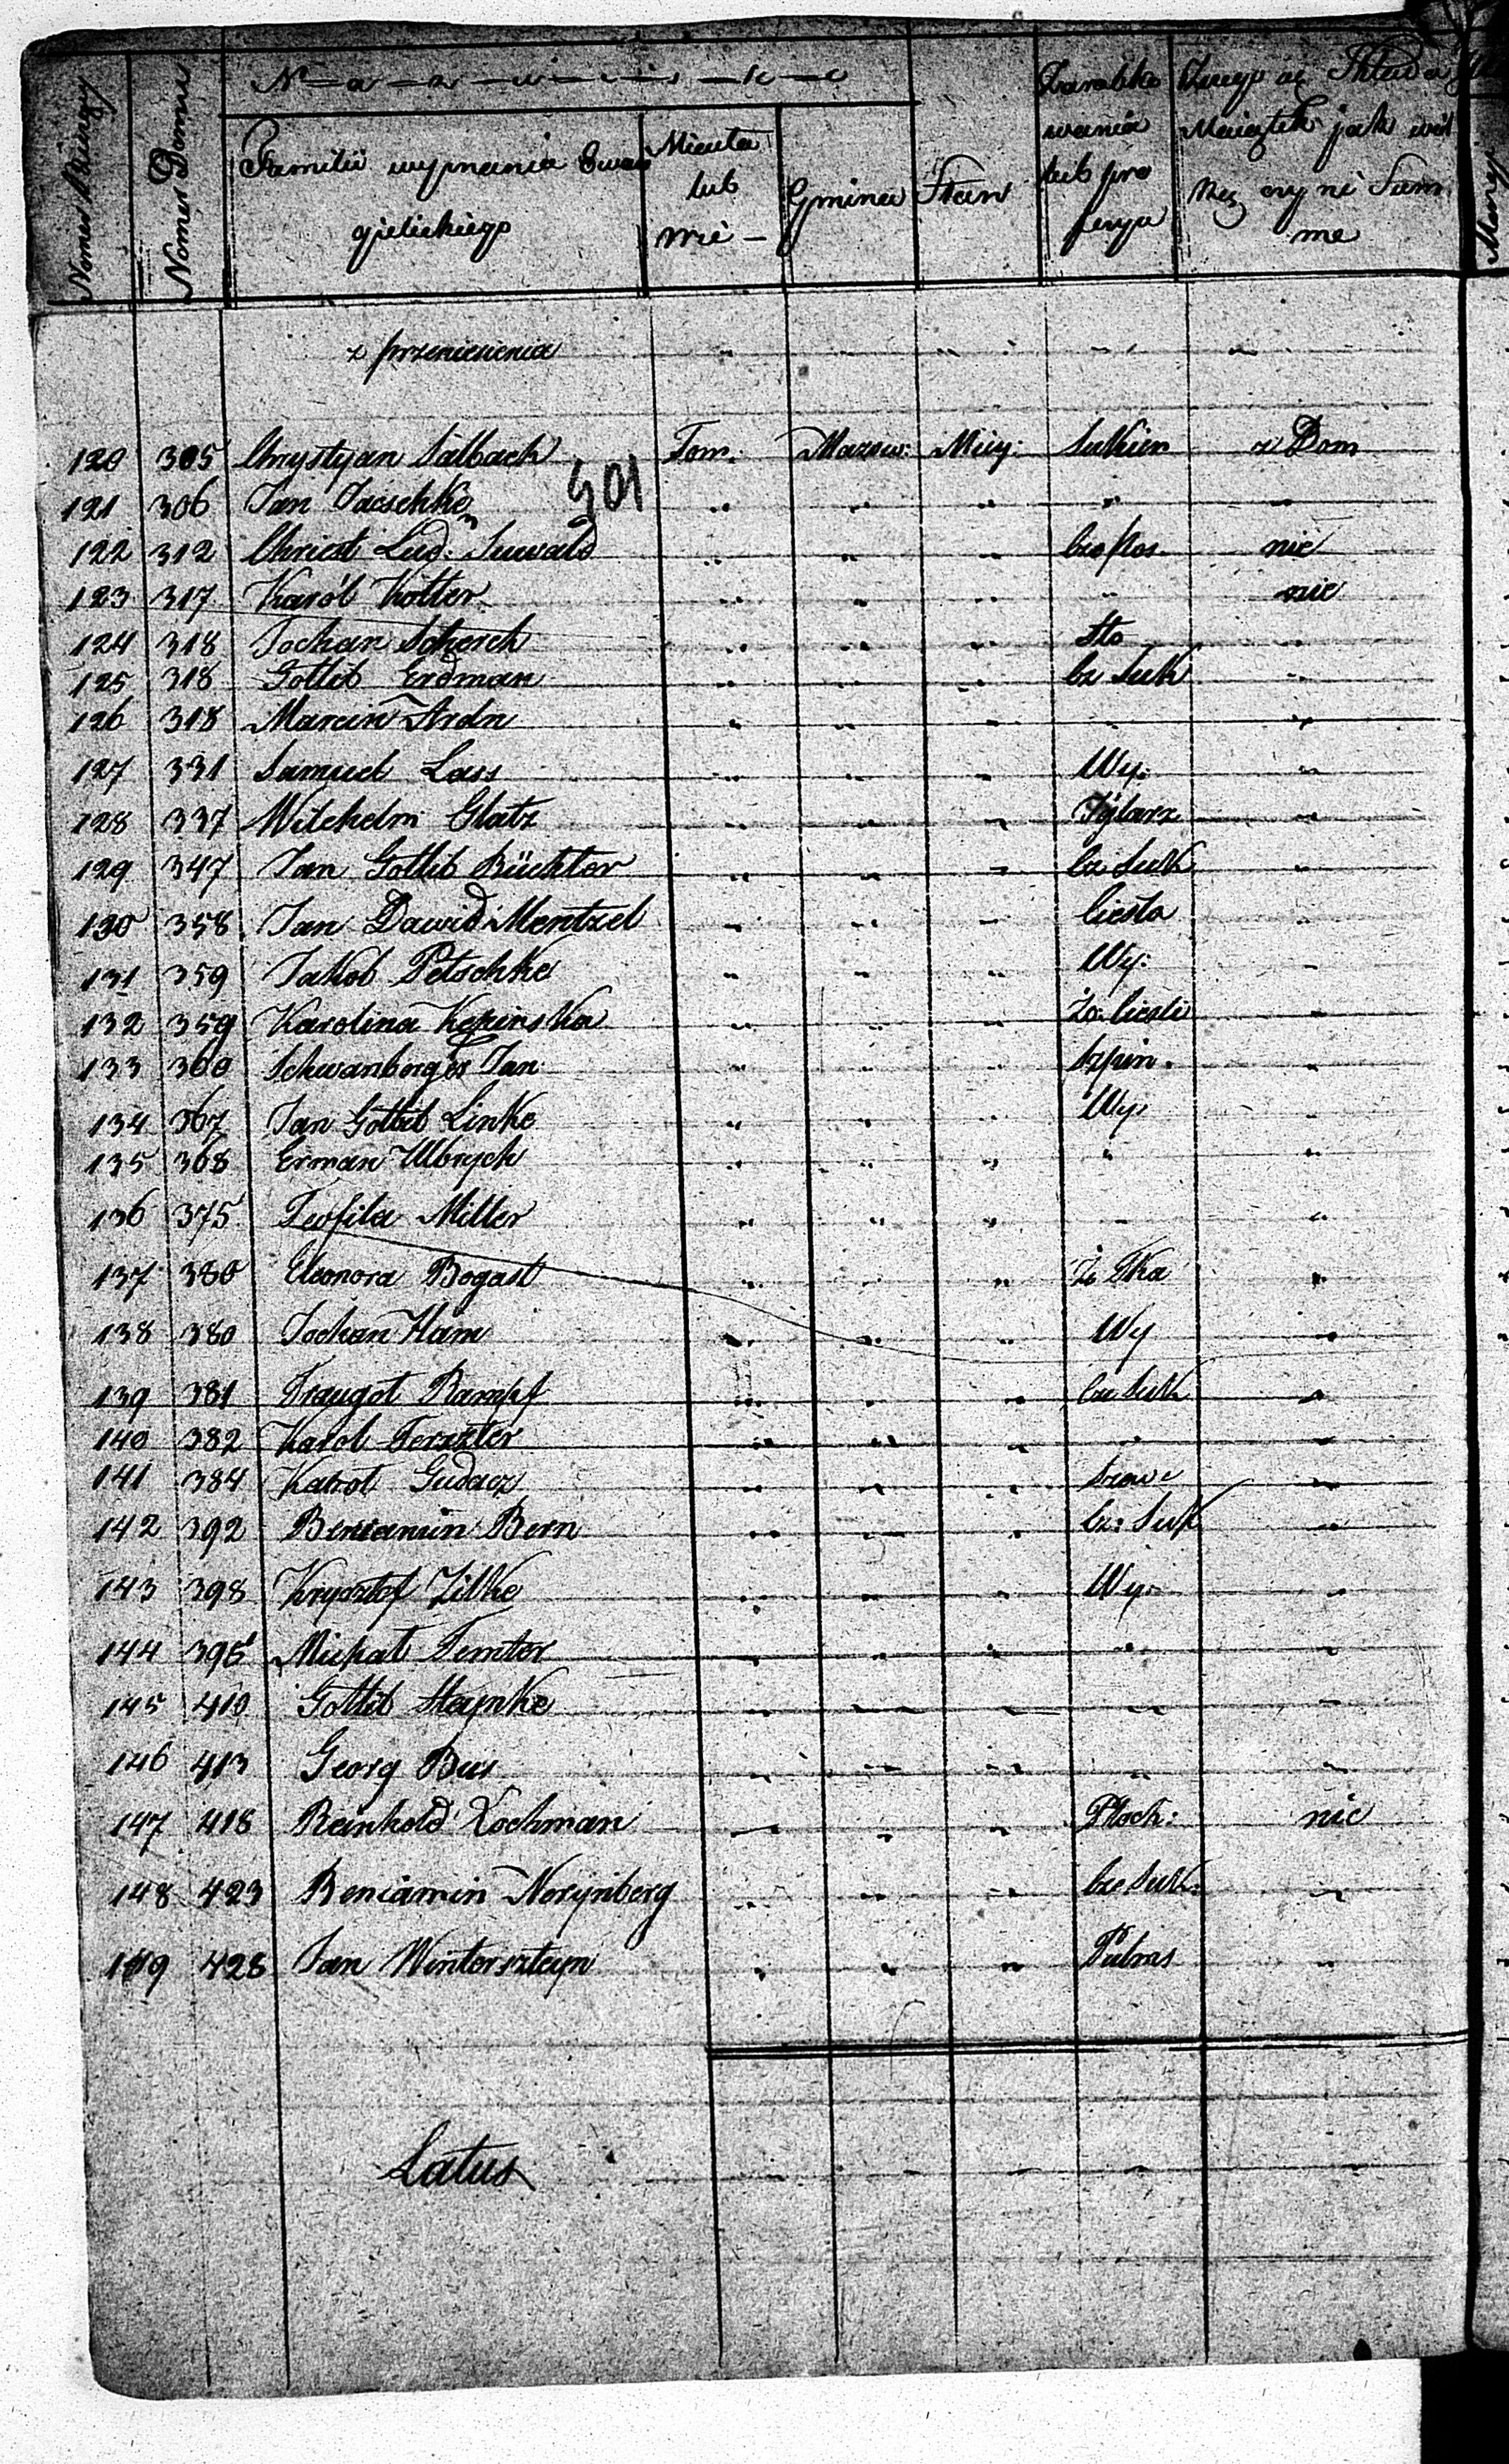 Nomer Bierzący
Nomer Domu
N—a—z—w—i—s—k—o
Familii wyznania Ewan
gielickiego
Miasta
lub
wsi –
Gmina
Stan
Zarobko
wania
lub pro
fesya
Czego się Składa
Maiątek jak wiel
kiey oney ni Sum
me
z przeniesienia " " " " "
120 305 Chrystyan Salbach Tom: Mazow: Miey: Sukien z Dom
401
121 306 Jan Jaeschke " " " " "
122 312 Christ Lud: Suwald " " " nic
123 317 Karól Kotter " " " " nic
124 318 Jochan Scherch " " " Sto "
125 318 Gottlib Erdman " " " cz Suk "
126 318 Marcin Ardn " " " " "
127 331 Samuel Lass " " " Wy: "
128 337 Wilchelm Glatz " " "
129 347 Jan Gottlib Büchter " " " cz Suk "
130 358 Jan Dawid Mentzel " " " Ciesla "
131 359 Jakob Petschke " " " Wy: "
132 359 Karolina " " " Zo: Ciesli "
133 360 Schwanberger Jan " " " Szpin. "
134 367 Jan Gottlib Linke " " " Wy: "
135 368 Erman Ulbrych " " " " "
136 375 Teofila Miller " " " " "
137 380 Eleonora Bogast " " " Żo Tka "
138 380 Jochan Ham " " " Wy "
139 381 Traugot Rampf " " " cze Suk "
140 382 Karol Ferszter " " " " "
141 384 Karol Gudacz " " " Szew: "
142 392 Beniamin Bern " " " cz: Suk "
143 398 Krysztof Zilke " " " Wy: "
144 398 Michał Temter " " " " "
145 410 Gottlib Steynke " " " " "
146 413 Georg Bus " " " " "
147 418 Reinhold Lochman " " " nic
148 423 Beniamin Norynberg " " " cze Suk: "
149 428 Jan Winterszteyn " " " "
Latus " " " " "